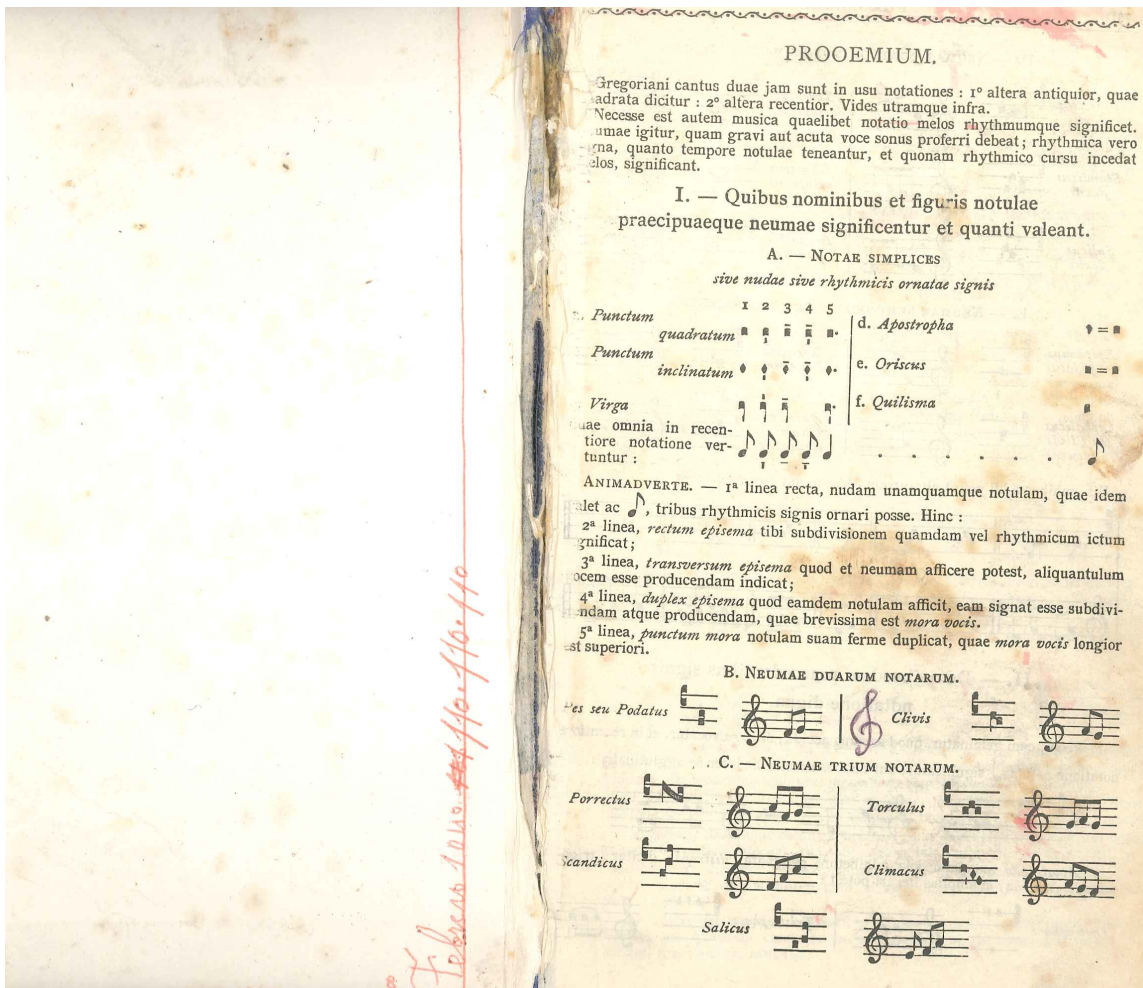 PROOEMIUM.
Gregoriani cantus duae jam sunt in usu notationes : 1º altera antiquior, quae
adrata dicitur : 2º altera recentior. Vides utramque infra.
Necesse est autem musica quaelibet notatio melos rhythmumque significet.
umae igitur, quam gravi aut acuta voce sonus proferri debeat; rhythmica vero
gna, quanto tempore notulae teneantur, et quonam rhythmico cursu incedat
elos, significant.
I. — Quibus nominibus et figuris notulae
praecipuaeque neumae significentur et quanti valeant.
A. — NOTAE SIMPLICES
sive nudae sive rhythmicis ornatae signis
1 2 3 4 5
Punctum
quadratum
Punctum
inclinatum
Virga
uae omnia in recen-
tiore notatione ver-
tuntur :
d. Apostropha =
e. Oriscus =
f. Quilisma
ANIMADVERTE. — 1ª linea recta, nudam unamquamque notulam, quae idem
alet ac , tribus rhythmicis signis ornari posse. Hinc :
2ª linea, rectum episema tibi subdivisionem quamdam vel rhythmicum ictum
gnificat;
3ª linea, transversum episema quod et neumam afficere potest, aliquantulum
ocem esse producendam indicat;
4ª linea, duplex episema quod eamdem notulam afficit, eam signat esse subdivi-
ndam atque producendam, quae brevissima est mora vocis.
5ª linea, punctum mora notulam suam ferme duplicat, quae mora vocis longior
est superiori.
B. NEUMAE DUARUM NOTARUM.
es seu Podatus
Clivis
C. — NEUMAE TRIUM NOTARUM.
Porrectus
Torculus
Scandicus
Climacus
Salicus